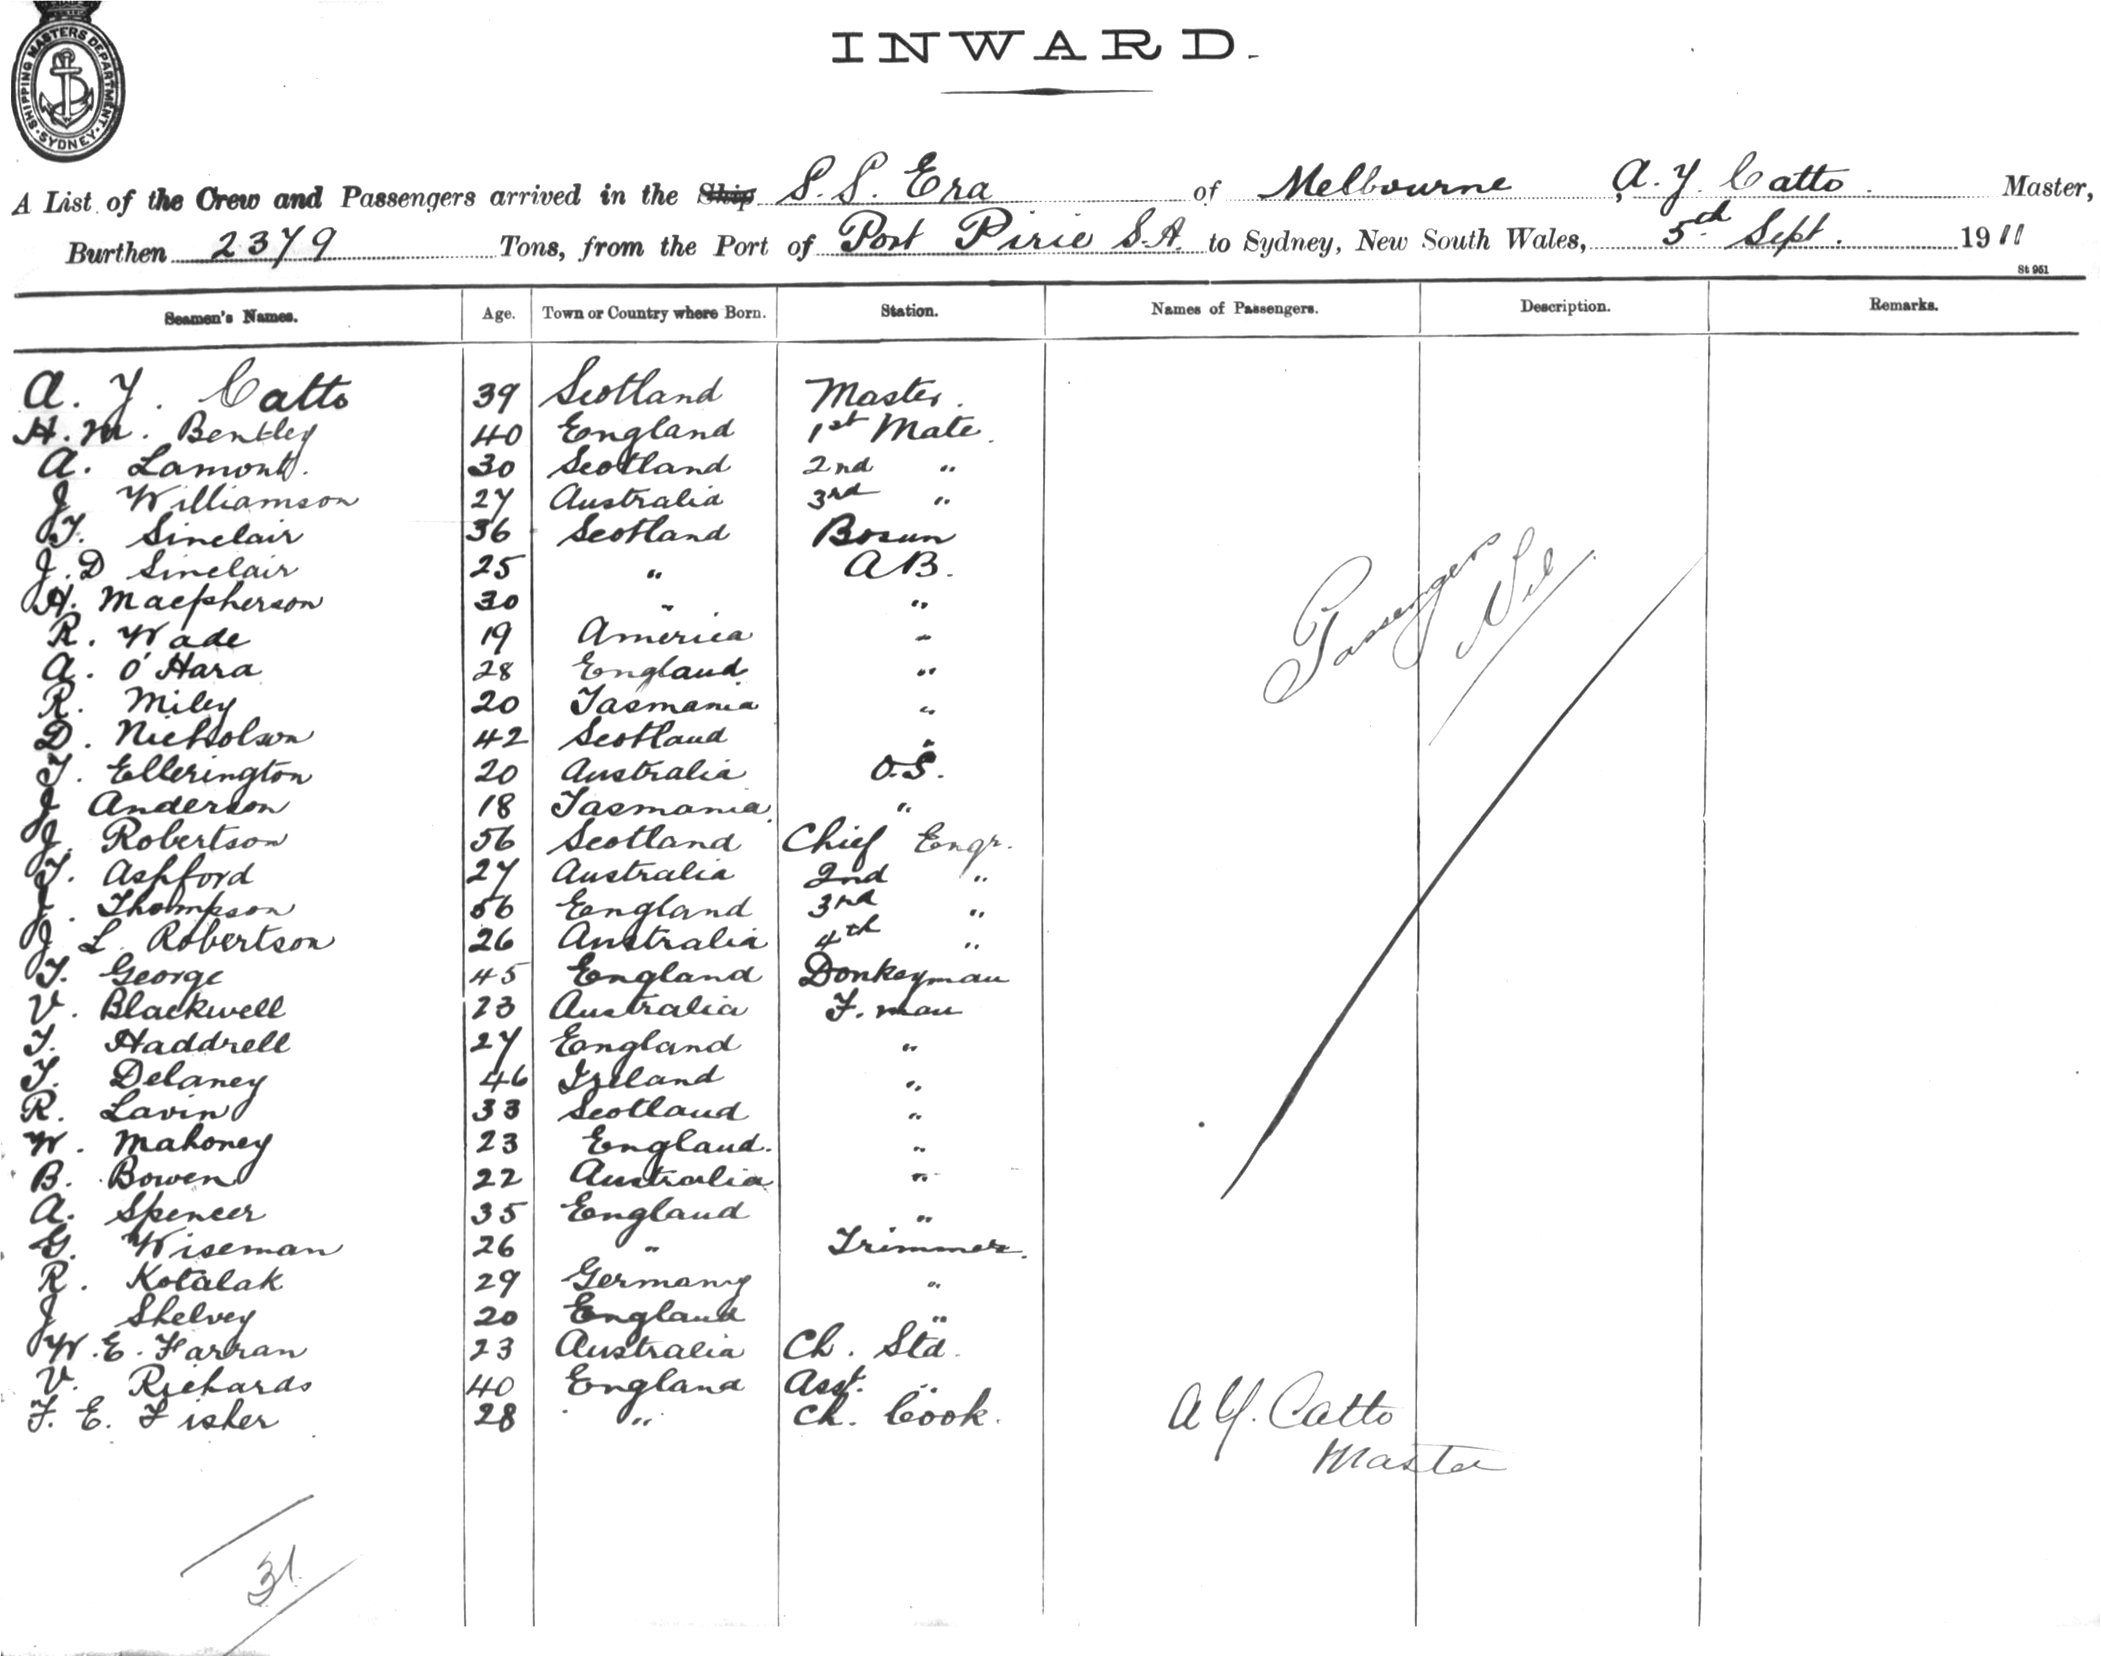 SHIPPING MASTERS DEPARTMENT SYDNEY
INWARD.
A List of the Crew and Passengers arrived in the Ship S.S. Era of Melbourne, A. Y. Catto. Master,
Burthen 2379 Tons, from the Port of Port Pirie S.A. to Sydney, New South Wales, 5th Sept. 1911
St 951
Seamen's Names. Age. Town or Country where Born. Station. Names of Passengers. Description. Remarks.
A. Y. Catto 39 Scotland Master.
H. M. Bentley 40 England 1st Mate.
A. Lamont. 30 Scotland 2nd "
J Williamson 27 Australia 3rd "
T. Sinclair 36 Scotland Bosun
J. D Sinclair 25 " A B.
H. Macpherson 30 " "
R. Wade 19 America "
A. O'Hara 28 England "
R. Miley 20 Tasmania "
D. Nicholson 42 Scotland "
T. Ellerington 20 Australia O.S.
J Anderson 18 Tasmania. "
J. Robertson 56 Scotland Chief Engr.
T. Ashford 27 Australia 2nd "
J. Thompson 56 England 3rd "
J L Robertson 26 Australia 4th "
T. George 45 England Donkeyman
V. Blackwell 23 Australia F. man
T. Haddrell 27 England "
T. Delaney 46 Ireland "
R. Lavin 33 Scotland "
W. Mahoney 23 England. "
B. Bowen 22 Australia "
A. Spencer 35 England "
G. Wiseman 26 " Trimmer.
R. Kotalak 29 Germany "
J Shelvey 20 England "
W. E. Farran 23 Australia Ch. Std.
V. Richards 40 England Asst. "
F. E. Fisher 28 " Ch. Cook.
Passengers
Nil
A Y. Catto
Master
31